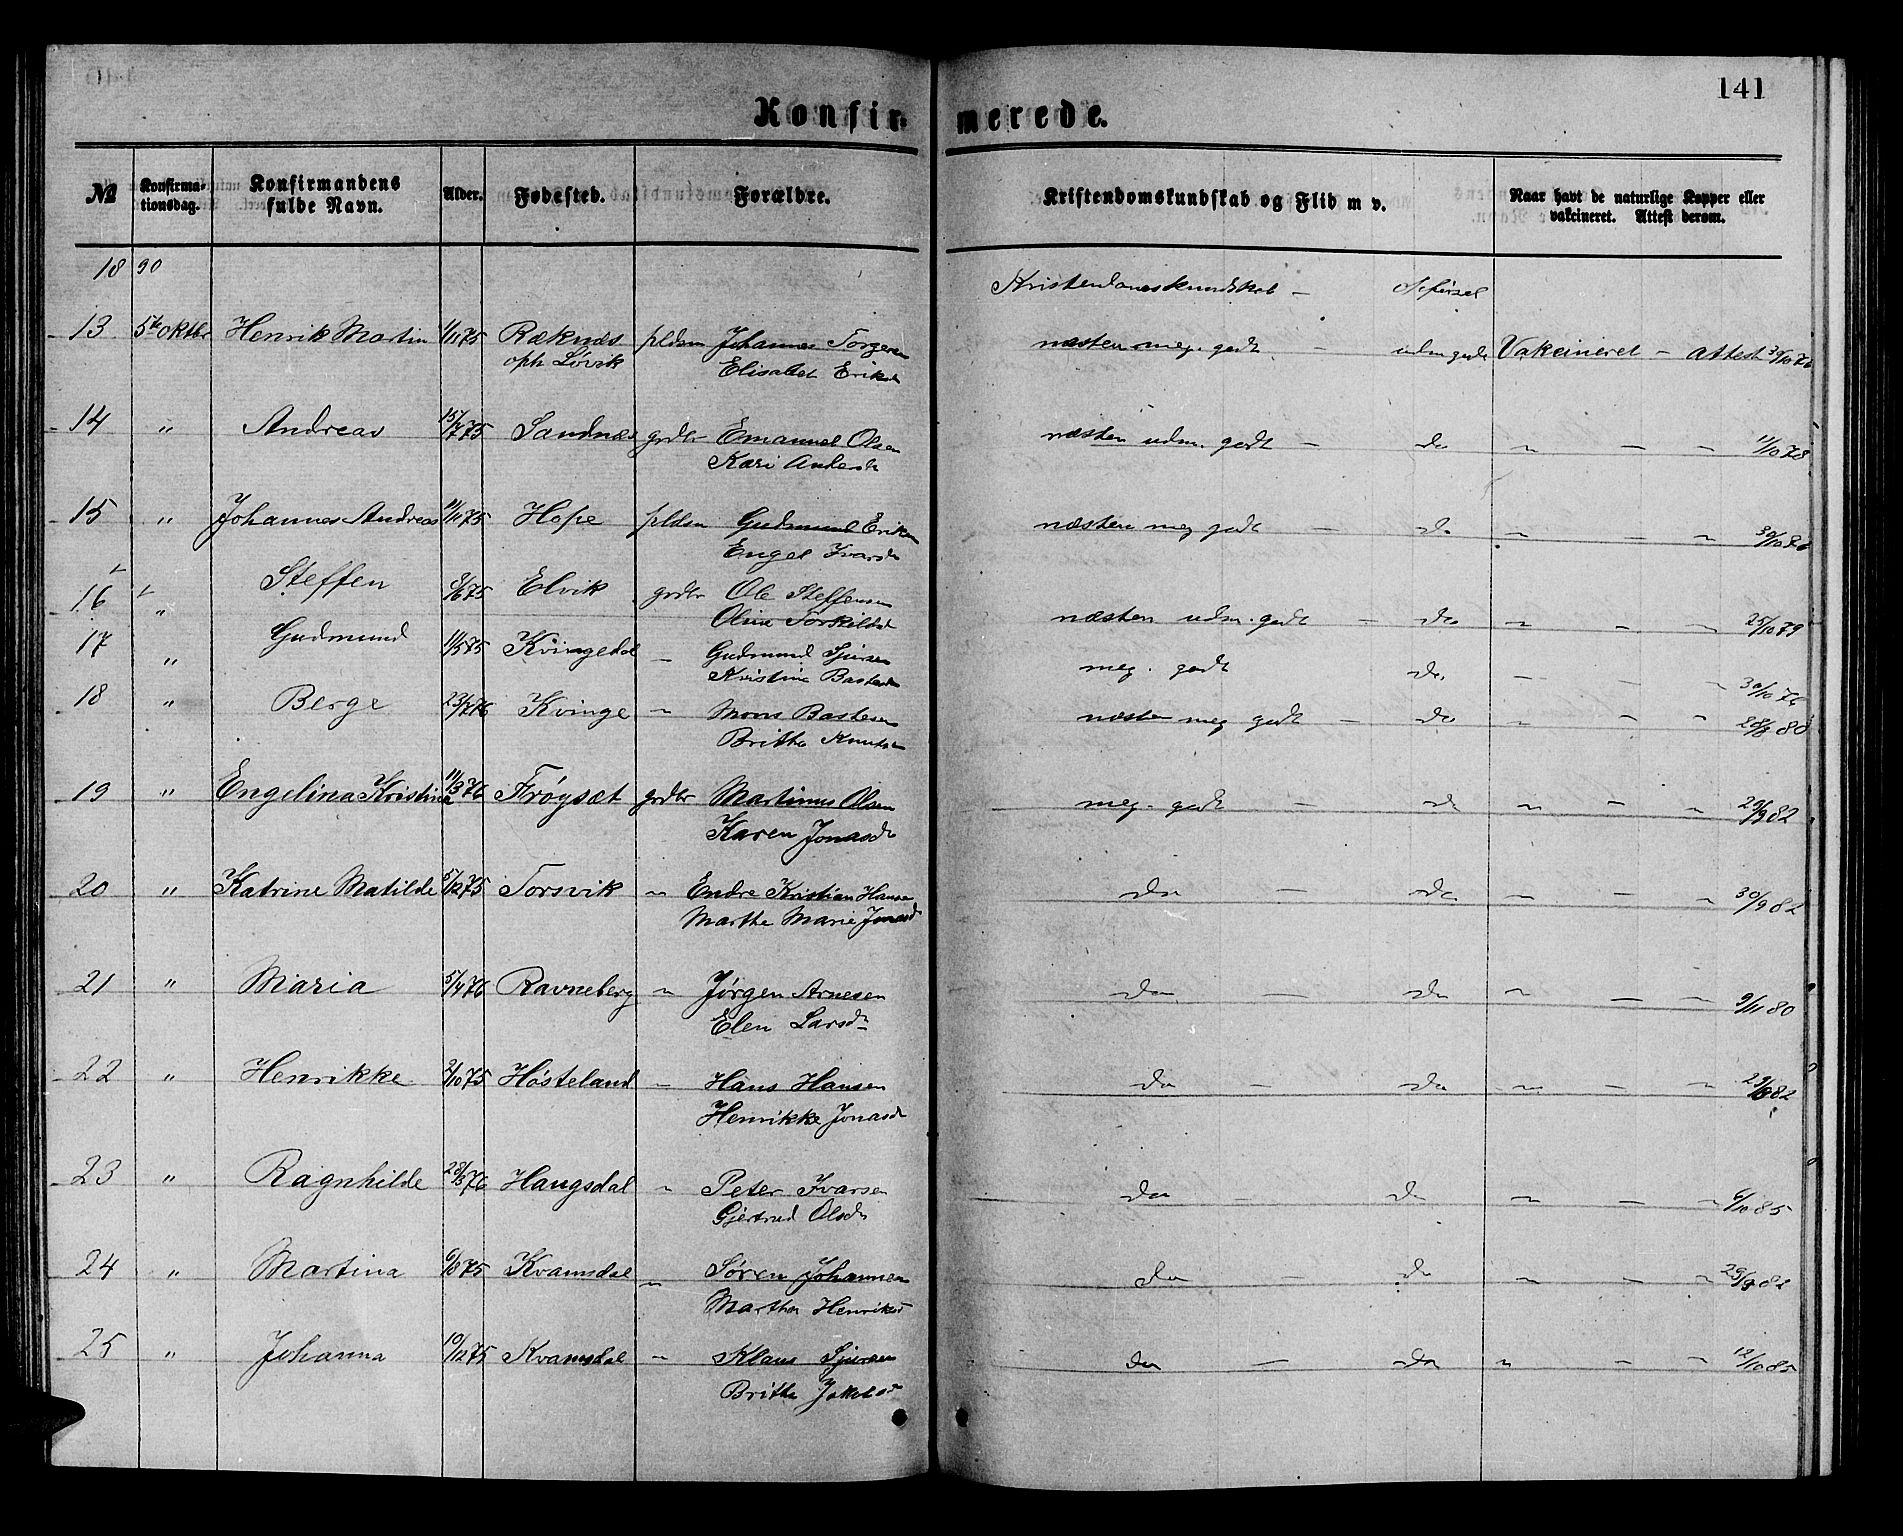 141
Konfirmerede.
№ Konfirmationsdag. Konfirmandens fulde Navn. Alder. Fødested. Forældre. Kristendomskundskab og Flid m v. Naar havt de naturlige Kopper eller vakcineret. Attest derom.
18 90 Kristendomskundskab — Opførsel
13 5te oktbr Henrik Martin 1/11 75 Ræknæs pldsm Johannes Torgersen næsten meg. godt — udm godt Vakcineret — attest
oph Løvik Elisabet Eriksd
14 " Andreas 15/7 75 Sandnæs grdbr Emanuel Olsen næsten udm. godt — do " — " 11/10 78
Kari Andersd
15 " Johannes Andreas 11/11 75 Hope pldsm Gudmund Eriksen næsten meg godt — do " — "
Engel Ivarsd
16 " Steffen 8/6 75 Elvik grdbr Ole Steffensen næsten udm. godt — do " — " 25/10 79
Oline Torkildsd
17 " Gudmund 11/5 75 Kvingedal — Gudmund Sjursen meg. godt do " — " 30/10 76
Kristine Bastesd
18 " Berge 23/7 76 Kvinge " Mons Bastesen næsten meg godt — do " — " 28/8 80
Brithe Knutsd
19 " Engelina Kristina 11/3 76 Frøyset grdbr Martinus Olsen meg. godt — do " — " 29/9 82
Karen Jonasd
20 " Katrine Matilde 5/12 75 Torsvik " Endre Kristian Hansen do — do " — " 30/9 82
Marthe Marie Jonasd
21 " Maria 5/4 76 Ravneberg " Jørgen Arnesen do — do " — " 9/11 80
Elen Larsd
22 " Henrikke 2/10 75 Høsteland " Hans Hansen do — do " — "
Henrikke Jonasd
23 " Ragnhilde 28/3 76 Haugsdal " Peter Ivarsen do — do " — " 6/10 85
Gjertrud Olsd
24 " Martina 6/8 75 Kvamsdal " Søren Johannesen do — do " — " 29/9 82
Martha Henriksd
25 " Johanna 10/12 75 Kvamsdal " Klaus Sjursen do — do " — " 12/10 85
Brithe Jakobsd